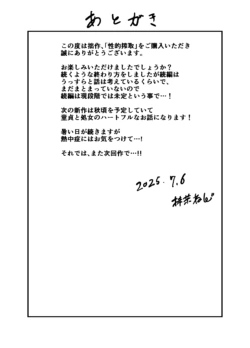 あとがき
この度は拙作、「性的搾取」をご購入いただき
誠にありがとうございます。
お楽しみいただけましたでしょうか？
続くような終わり方をしましたが続編は
うっすらと話は考えているくらいで、
まだまとまっていないので
続編は現段階では未定という事で…！
次の新作は秋頃を予定していて
童貞と処女のハートフルなお話になります！
暑い日が続きますが
熱中症にはお気をつけて…！
それでは、また次回作で…！！
2025.7.6